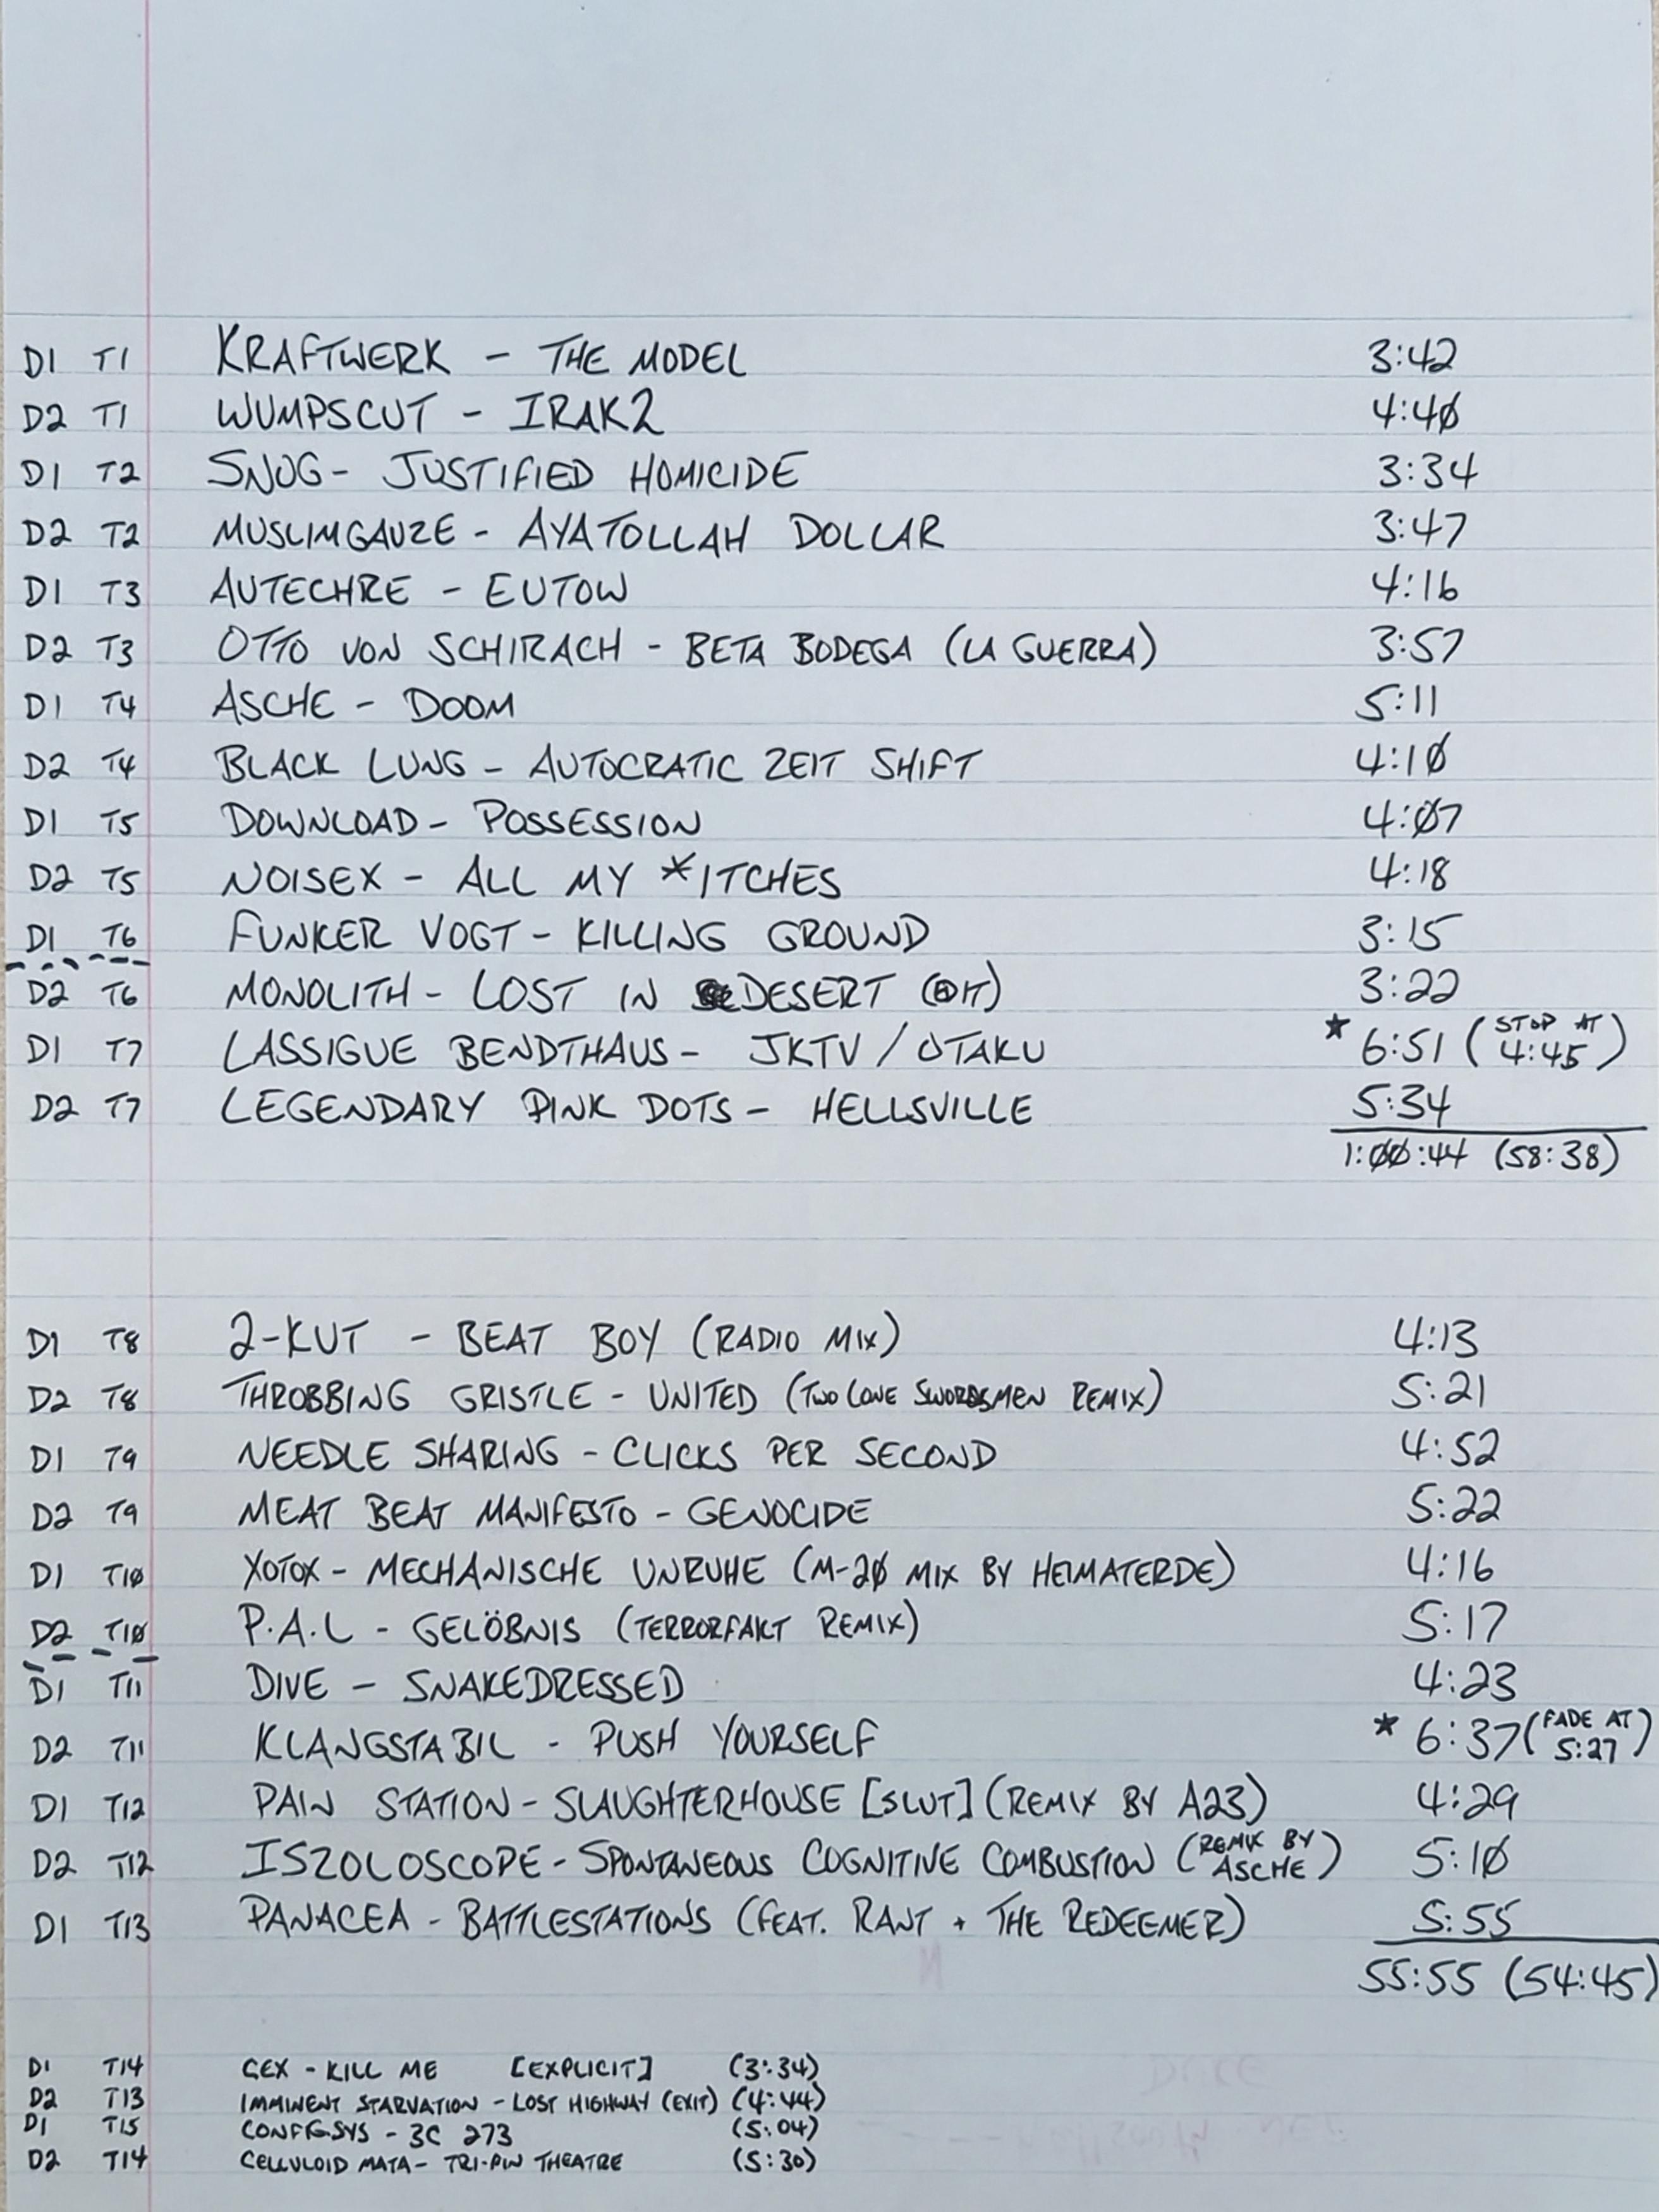 D1 T1 KRAFTWERK - THE MODEL 3:42
D2 T1 WUMPSCUT - IRAK2 4:40
D1 T2 SNOG - JUSTIFIED HOMICIDE 3:34
D2 T2 MUSLIMGAUZE - AYATOLLAH DOLLAR 3:47
D1 T3 AUTECHRE - EUTOW 4:16
D2 T3 OTTO VON SCHIRACH - BETA BODEGA (LA GUERRA) 3:57
D1 T4 ASCHE - DOOM 5:11
D2 T4 BLACK LUNG - AUTOCRATIC ZEIT SHIFT 4:10
D1 T5 DOWNLOAD - POSSESSION 4:07
D2 T5 NOISEX - ALL MY *ITCHES 4:18
D1 T6 FUNKER VOGT - KILLING GROUND 3:15
D2 T6 MONOLITH - LOST IN DESERT 3:22
D1 T7 LASSIGUE BENDTHAUS - JKTV / OTAKU * 6:51 (STOP AT 4:45)
D2 T7 LEGENDARY PINK DOTS - HELLSVILLE 5:34
1:00:44 (58:38)
D1 T8 2-KUT - BEAT BOY (RADIO MIX) 4:13
D2 T8 THROBBING GRISTLE - UNITED (TWO LONE SWORDSMEN REMIX) 5:21
D1 T9 NEEDLE SHARING - CLICKS PER SECOND 4:52
D2 T9 MEAT BEAT MANIFESTO - GENOCIDE 5:22
D1 T10 XOTOX - MECHANISCHE UNRUHE (M-20 MIX BY HEIMATERDE) 4:16
D2 T10 P.A.L - GELÖBNIS (TERRORFAKT REMIX) 5:17
D1 T11 DIVE - SNAKEDRESSED 4:23
D2 T11 KLANGSTABIL - PUSH YOURSELF * 6:37 (FADE AT 5:27)
D1 T12 PAIN STATION - SLAUGHTERHOUSE [SLUT] (REMIX BY A23) 4:29
D2 T12 ISZOLOSCOPE - SPONTANEOUS COGNITIVE COMBUSTION (REMIX BY ASCHE) 5:10
D1 T13 PANACEA - BATTLESTATIONS (FEAT. RANT + THE REDEEMER) 5:55
55:55 (54:45)
D1 T14 GEX - KILL ME [EXPLICIT] (3:34)
D2 T13 IMMINENT STARVATION - LOST HIGHWAY (EXIT) (4:44)
D1 T15 CONFIG.SYS - 3C 273 (5:04)
D2 T14 CELLULOID MATA - TRI-PIN THEATRE (5:30)